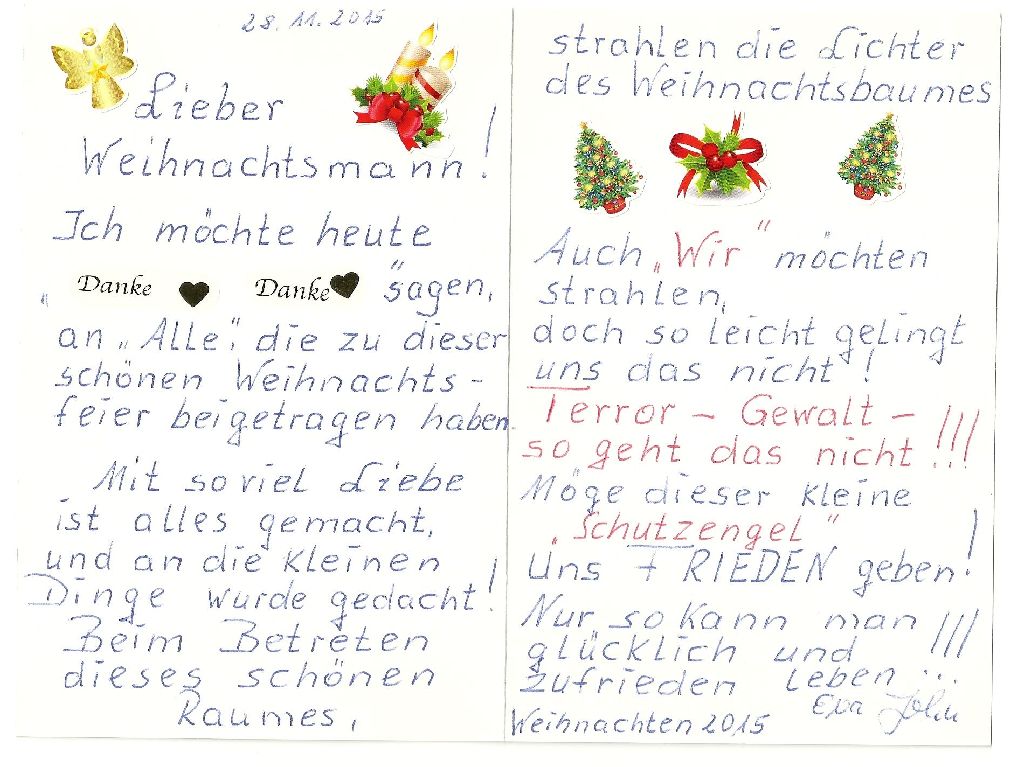 28.11.2015
Lieber
Weihnachtsmann!
Ich möchte heute
„Danke Danke" sagen,
an „Alle", die zu dieser
schönen Weihnachts-
feier beigetragen haben.
Mit soviel Liebe
ist alles gemacht,
und an die kleinen
Dinge wurde gedacht!
Beim Betreten
dieses schönen
Raumes,
strahlen die Lichter
des Weihnachtsbaumes
Auch „Wir" möchten
strahlen,
doch so leicht gelingt
uns das nicht!
Terror – Gewalt –
so geht das nicht!!!
Möge dieser kleine
„Schutzengel"
Uns FRIEDEN geben!
Nur so kann man
glücklich und
zufrieden leben...!!!
Eva John
Weihnachten 2015